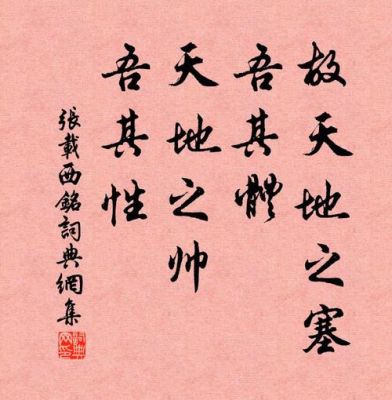 故天地之塞
吾其體
天地之帅
吾其性
張載西銘詞典網集